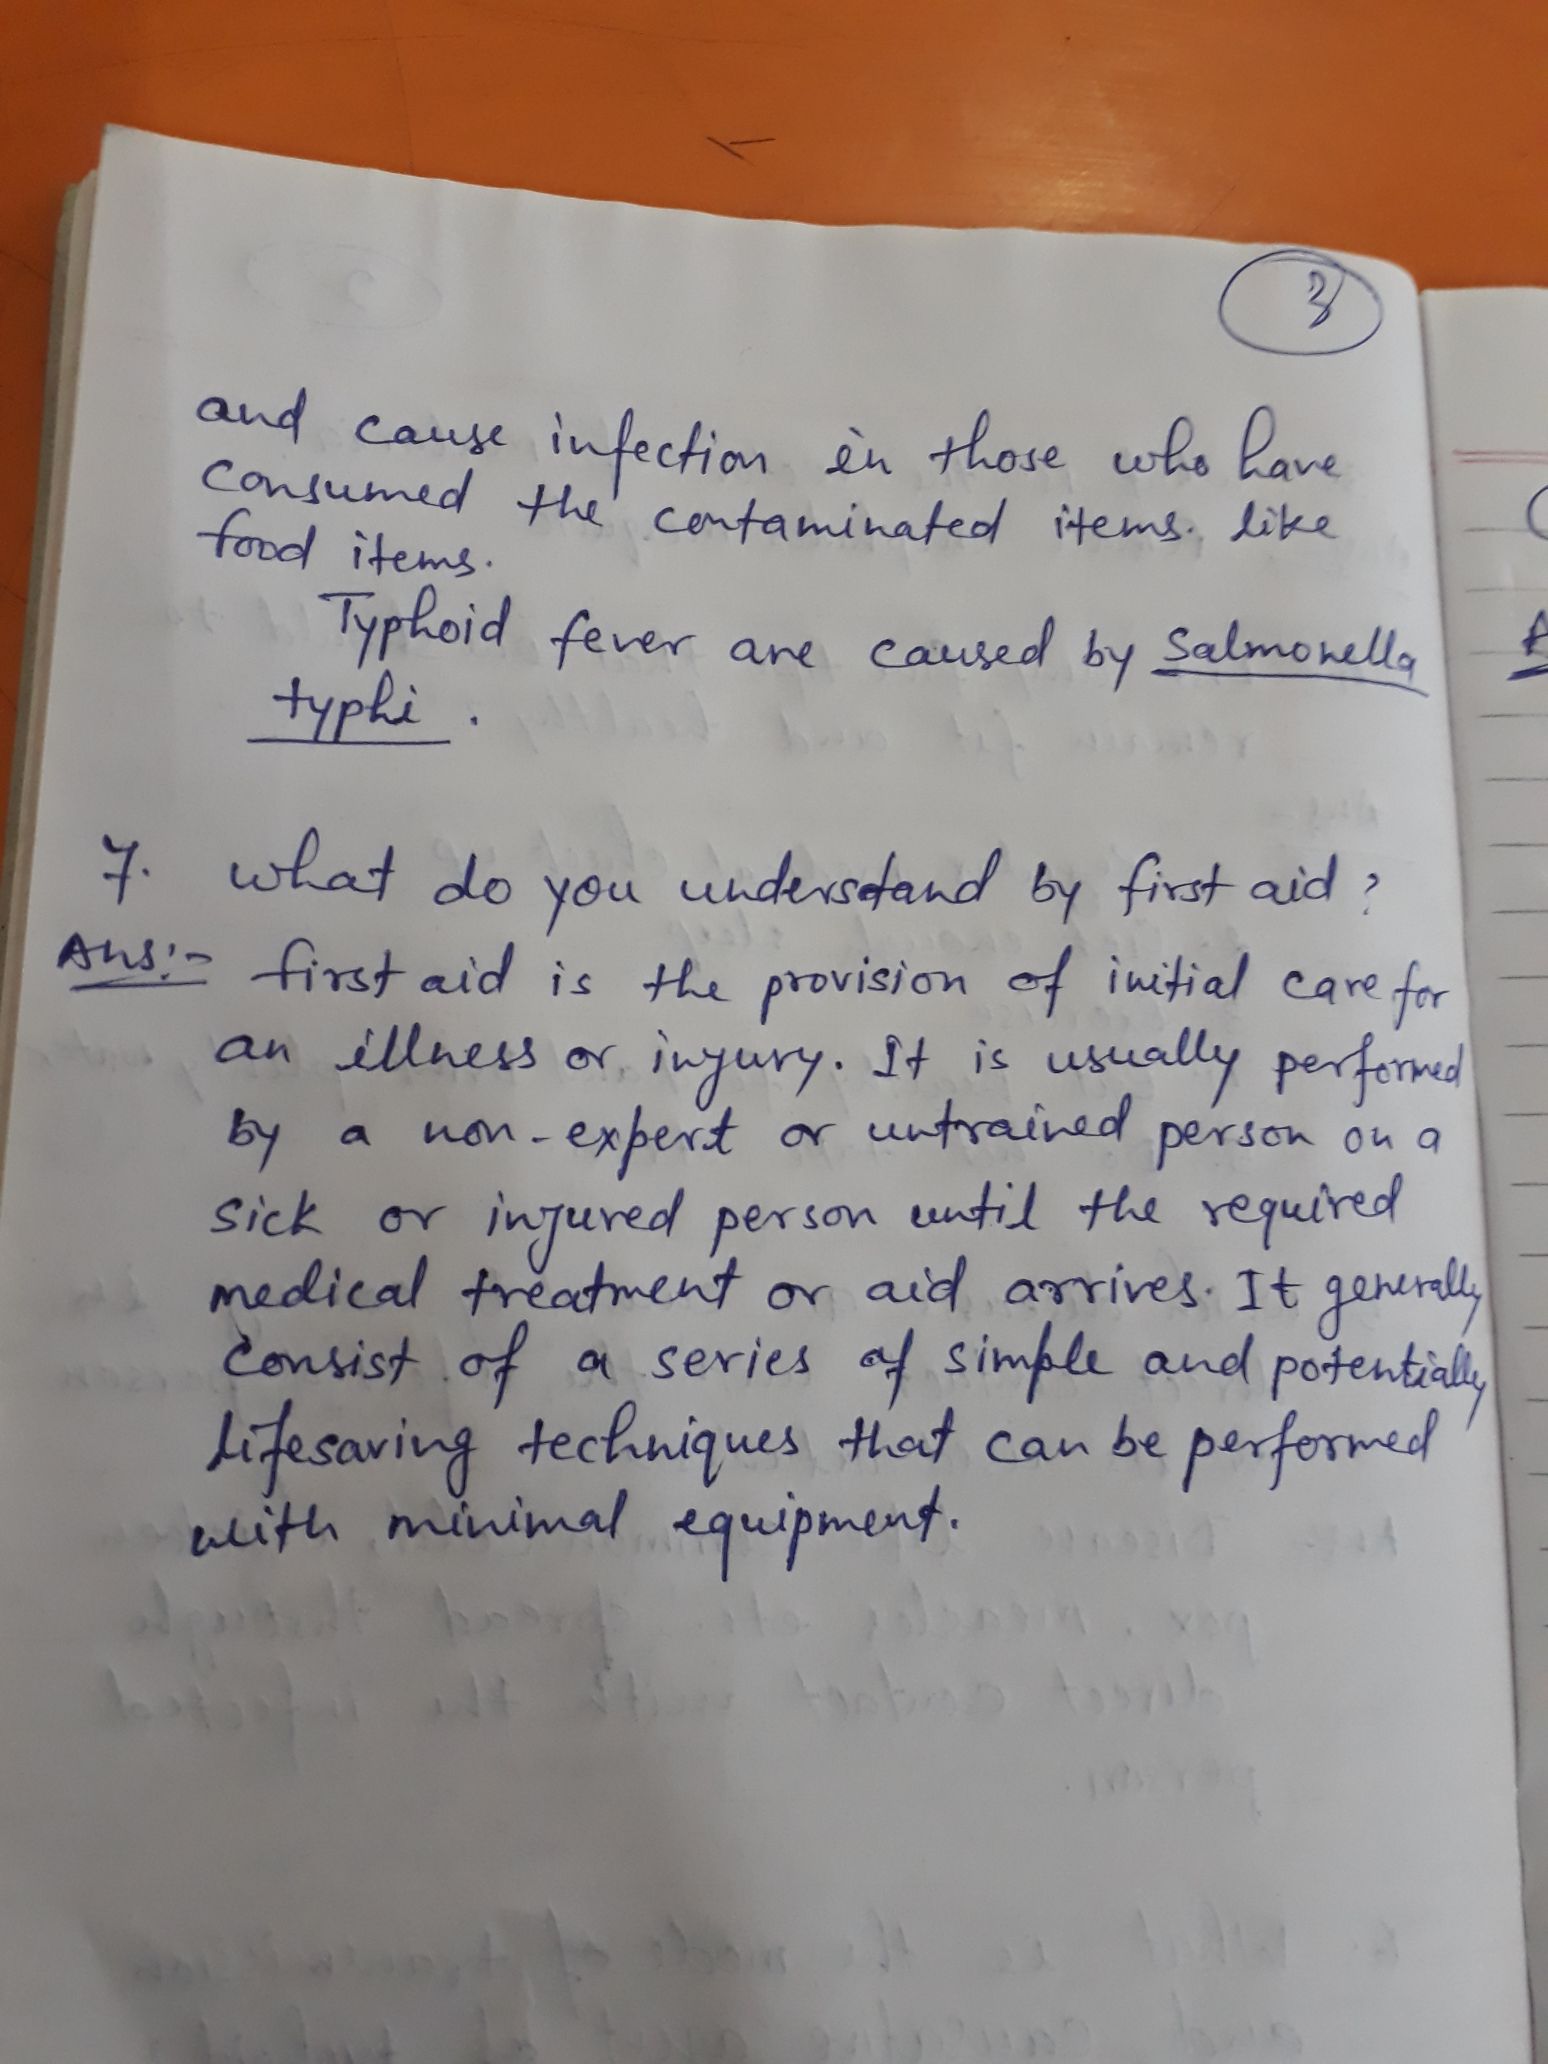 3
and cause infection in those who have
consumed the contaminated items. like
food items.
Typhoid fever are caused by Salmonella
typhi.
7. What do you understand by first aid?
Ans:- first aid is the provision of initial care for
an illness or injury. It is usually performed
by a non-expert or untrained person on a
sick or injured person until the required
medical treatment or aid arrives. It generally
consist of a series of simple and potentially
lifesaving techniques that can be performed
with minimal equipment.